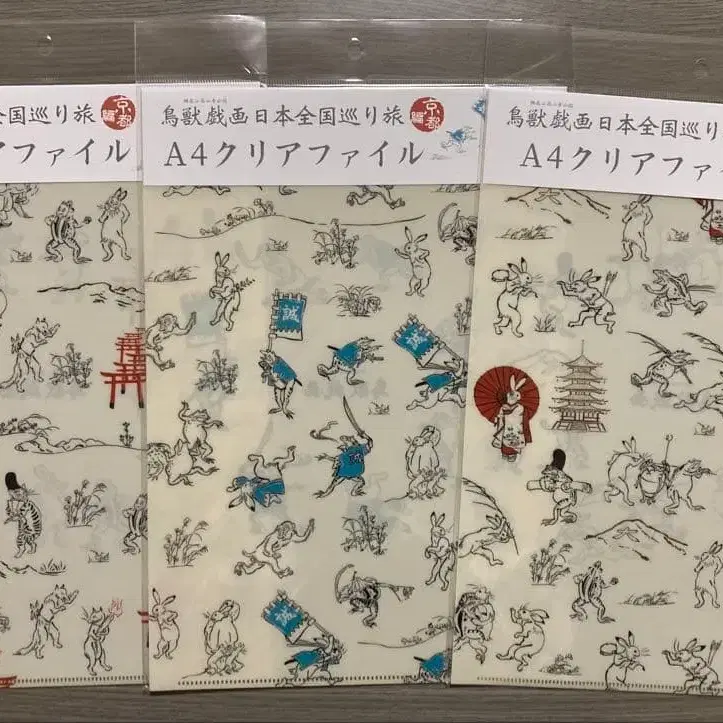 全国巡り旅 京都編
アファイル
鳥獣戯画日本全国巡り旅 京都編
A4クリアファイル
誠
誠
誠
誠
鳥獣戯画日本全国巡り
A4クリアファ